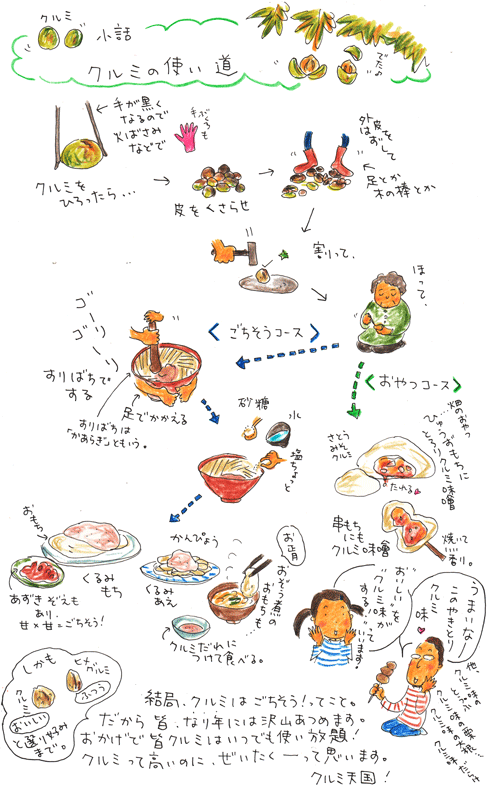 クルミ
小話
クルミの使い道
でた♪
手が黒く
なるので
火ばさみ
などで
クルミを
ひろったら…
皮をくさらせ
外皮を
はずして
足とか
木の棒とか
割って、
ほって、
〈ごちそうコース〉
ゴーリ
ゴーリ
すりばちで
する
すりばちは
足でかかえる
〈おやつコース〉
砂糖
水
塩ちょっと
…畑のおやつ
とろりクルミ味噌
さとう
みそ
クルミ
たれる
串もち
にも
クルミ味噌
焼いて
香り。
おもち
くるみ
もち
あずきぞえも
あり。
甘×甘=ごちそう!
かんぴょう
くるみ
あえ
お正月
おぞう煮の
おもちも
クルミだれに
つけて食べる。
うまいな〜
このやきとり
クルミ味
おいしい
クルミ味が
する
しかも
ヒメグルミ
クルミ
おいしい
ふつう
と選りすぐり
まで。
結局、クルミはごちそう!ってこと。
だから皆、なり年には沢山あつめます。
おかげで皆クルミはいつでも使い放題!
クルミって高いのに、ぜいたくーって思います。
クルミ天国!